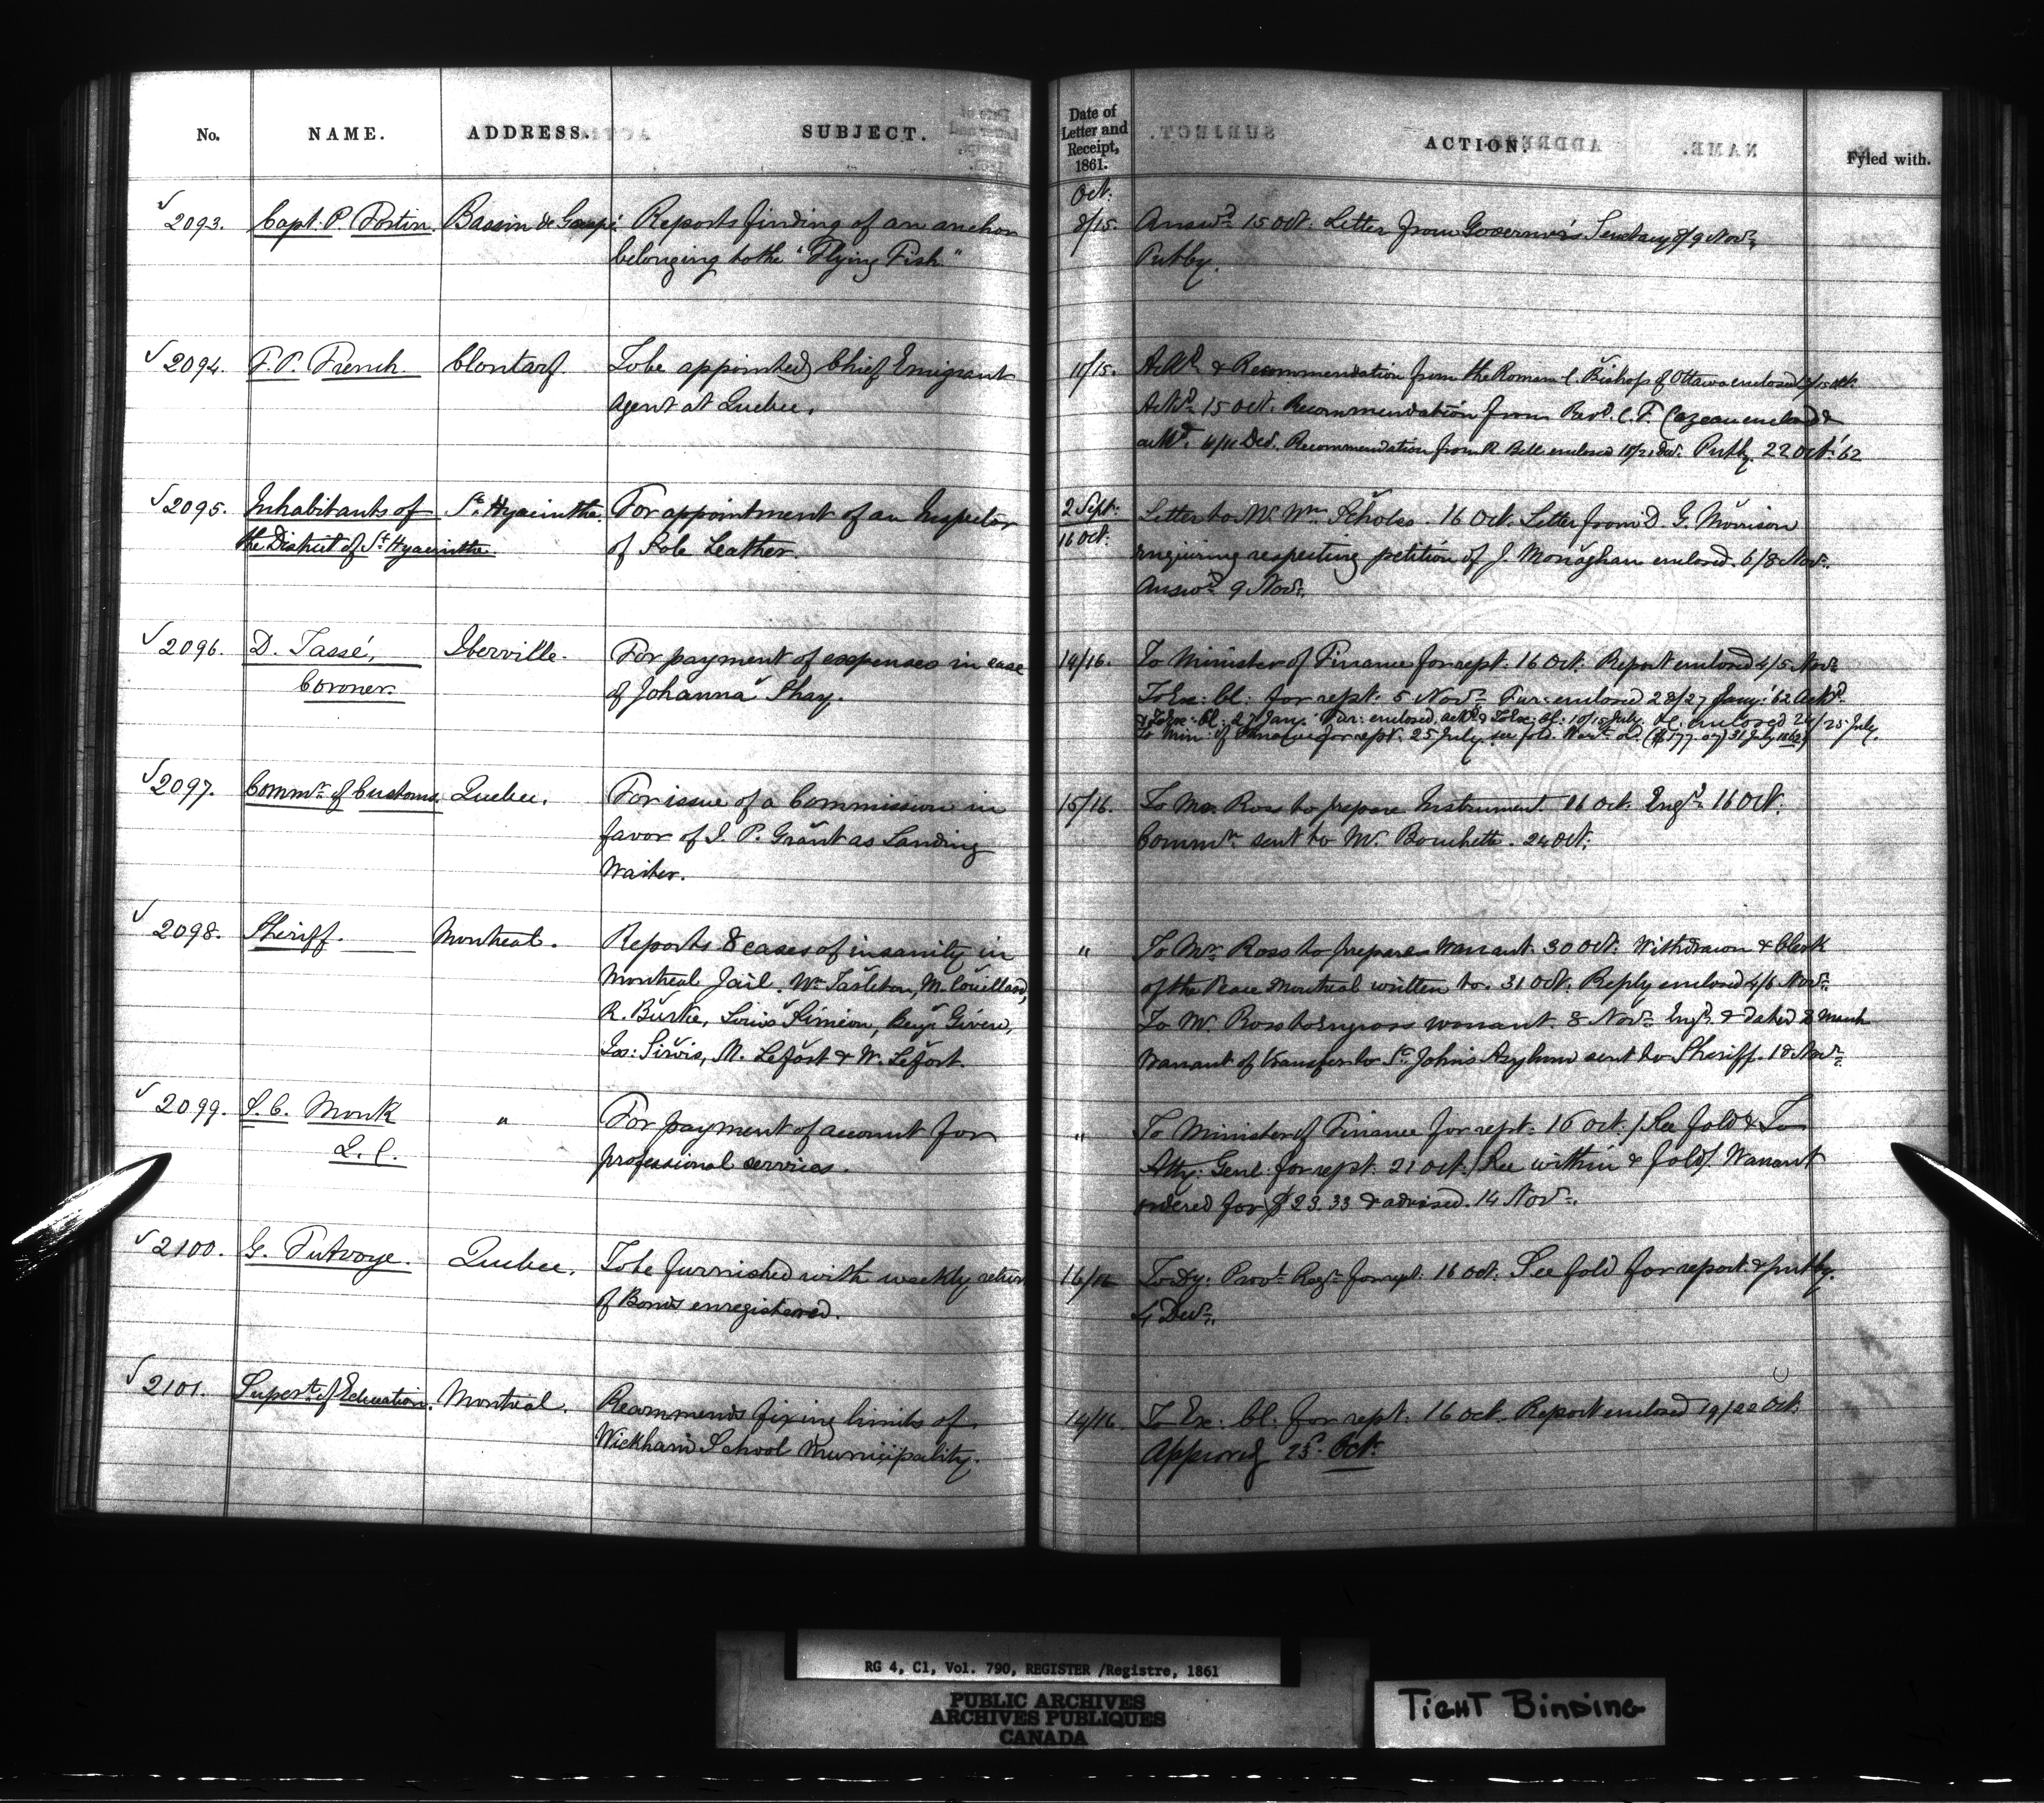 No. NAME. ADDRESS. SUBJECT.
2093. Capt: P. Fortin. Bassin de Gaspé. Reports finding of an anchor
belonging to the "Flying Fish"
2094. T. P. French. Clontarf. To be appointed Chief Emigrant
Agent at Quebec.
2095. Inhabitants of St. Hyacinthe. For appointment of an Inspector
the District of St. Hyacinthe. of Sole Leather.
2096. D. Tassé, Iberville. For payment of expenses in case
Coroner. of Johanna Shay.
2097. Commr. of Customs. Quebec. For issue of a Commission in
favor of J. P. Grant as Landing
Waiter.
2098. Sheriff. Montreal. Reports 8 cases of insanity in
Montreal Jail. Wm. Tarleton, M. Couillard,
R. Burke, Louis Simeon, Benjn. Given,
Jos: Sirois, M. Lefort & W. Lefort.
2099. S. C. Monk " For payment of account for
Q.C. professional services.
2100. G. Futvoye. Quebec. To be furnished with weekly return
of Bonds enregistered.
2101. Supert. of Education. Montreal. Recommends fixing limits of
Wickham School Municipality.
Date of
Letter and
Receipt,
1861. ACTION. Fyled with.
Oct.
8/15. Answd. 15 Oct. Letter from Governor's Secretary of 9 Novr.
Put by.
11/15. Ackd. & Recommendation from the Roman C. Bishop of Ottawa enclosed
Ackd. 15 Oct. Recommendation from Revd. C. F. Cazeau enclosed &
ackd. Decr. Recommendation from R. Bell enclosed Decr. Put by. 22 Oct. '62
2 Sept. Letter to Mr. Wm. 16 Oct. Letter from D. G. Morrison
16 Oct. enquiring respecting petition of J. Monaghan enclosed. 6/8 Novr.
Answd. 9 Novr.
14/16. To Minister of Finance for rept. 16 Oct. Report enclosed 4/5 Novr.
To Ex: Cl: for rept. 5 Novr. Fur: enclosed 28/27 Jany. '62 Ackd.
& To Ex: Cl: 27 Jany. Fur: enclosed, ackd. & To Ex: Cl: 10/15 July. enclosed 24/25 July.
To Min: of Finance for rept. 25 July. see fold. Wart. od. ($177.07) 31 July 1862
15/16. To Mr. Ross to prepare Instrument 16 Oct. Engd. 16 Oct.
Commn. sent to Mr. Bouchette. 24 Oct.
" To Mr. Ross to prepare Warrant. 30 Oct. Withdrawn & Clerk
of the Peace Montreal written to. 31 Oct. Reply enclosed 4/6 Novr.
To Mr. Ross to Engross warrant. 8 Novr. Engd. & dated 8 March
Warrant of transfer to St. Johns Asylum sent to Sheriff. 18 Novr.
" To Minister of Finance for rept. 16 Oct. / See fold & To
Atty: Genl: for rept. 21 Oct. / See within & fold / Warrant
ordered for $23.33 & advised. 14 Novr.
16/16 To Dy: Provl. Regr. for rept. 16 Oct. See fold for report & put by.
4 Decr.
14/16. To Ex: Cl: for rept. 16 Oct. Report enclosed 19/22 Oct.
Approved 25 Oct.
RG 4, C1, Vol. 790, REGISTER /Registre, 1861
PUBLIC ARCHIVES
ARCHIVES PUBLIQUES
CANADA
TIGHT BINDING